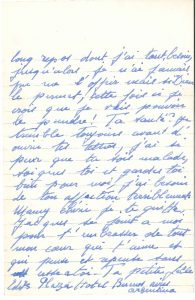 long repos dont j'ai tant besoin
jusqu'alors je n'ai jamais
pu me l'offrir mais
le permet, cette fois ci je
crois que je vais pouvoir
le prendre! Ta santé me
trouble toujours avant d'
ouvrir tes lettres, j'ai si
peur que tu sois malade,
soigne toi et gardes toi
bien pour moi, j'ai besoin
de ton affection terriblement
Mamy chérie je te quitte
Jacques se joint a moi
pour t'embrasser de tout
mon cœur qui t'aime et
qui pense et repense sans
Ta petite fille
Plaza Hotel Buenos Aires
argentina